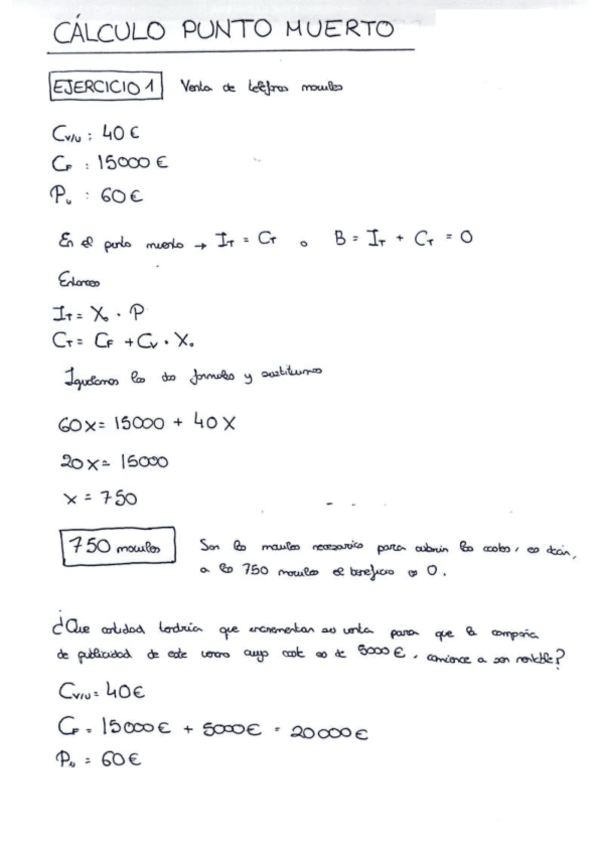 CÁLCULO PUNTO MUERTO
EJERCICIO 1 Venta de teléfonos moviles
Cv/u : 40 €
CF : 15000 €
Pu : 60 €
En el punto muerto → IT = CT o B = IT + CT = 0
Entonces
IT = X₀ · P
CT = CF + Cv · X₀
Igualamos las dos formulas y sustituimos
60x = 15000 + 40x
20x = 15000
x = 750
750 moviles Son los moviles necesarios para cubrir los costes, es decir,
a los 750 moviles el beneficio es 0.
¿Que cantidad tendria que incrementar su venta para que la compañia
de publicidad de este verano cuyo coste es de 5000 €, comience a ser rentable?
Cv/u = 40 €
CF = 15000 € + 5000 € = 20000 €
Pu = 60 €